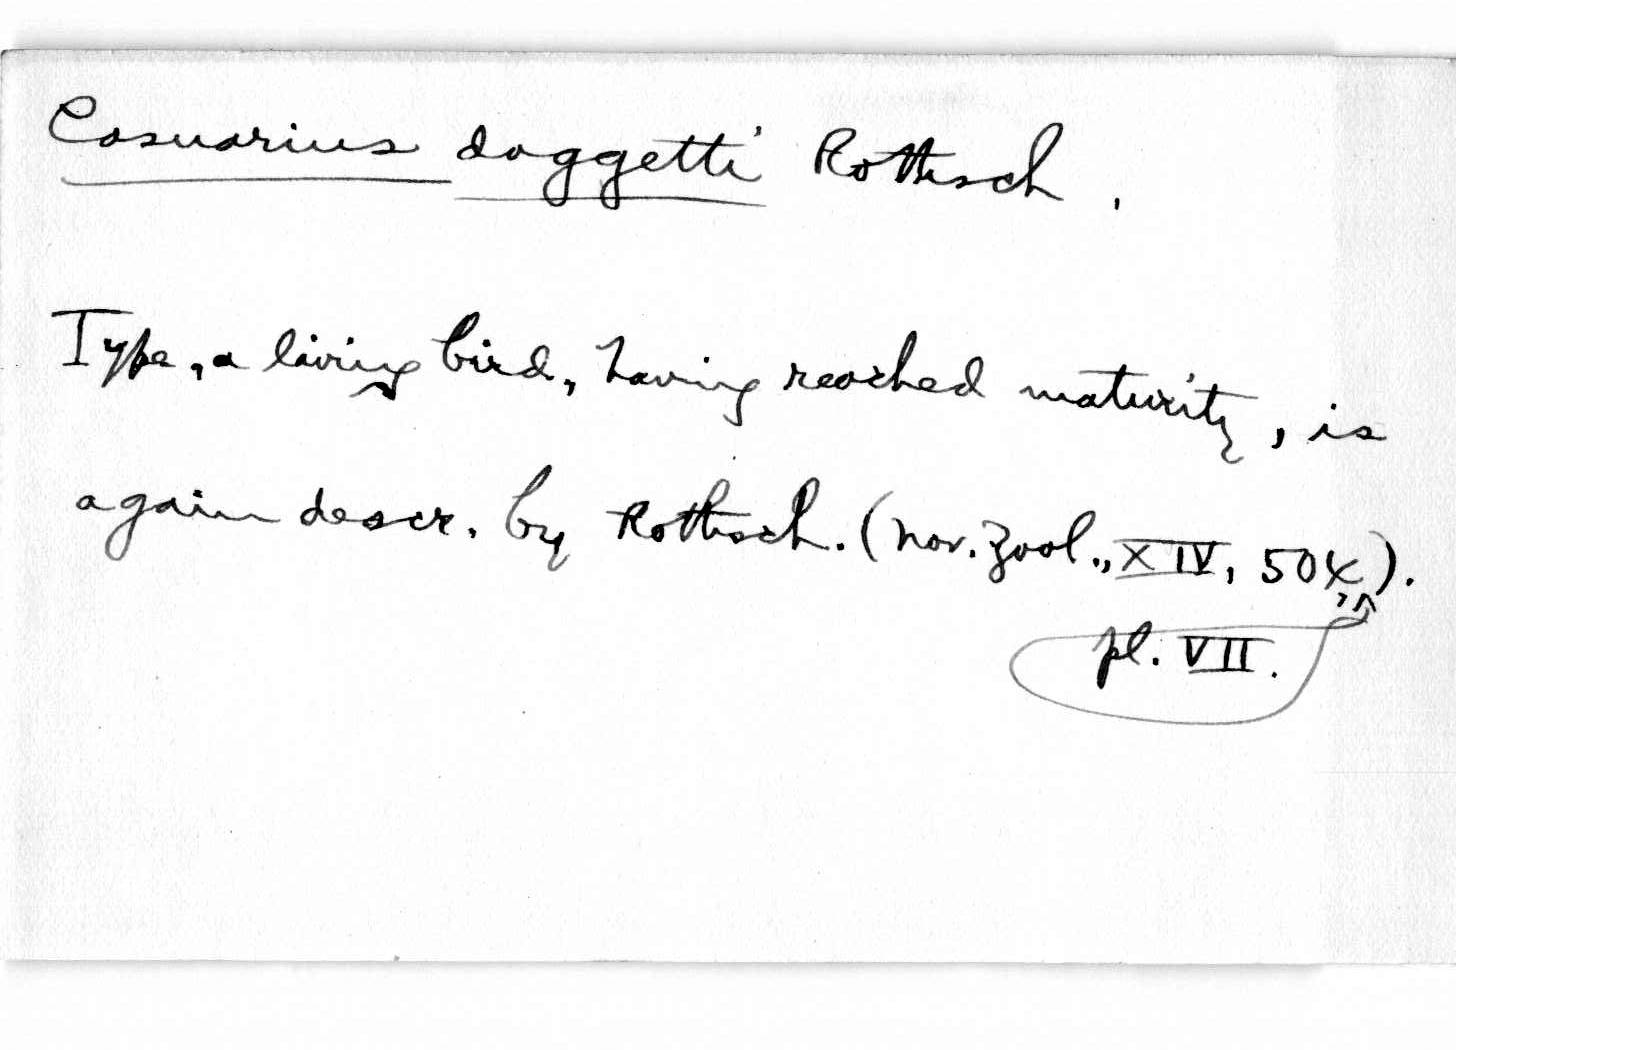 Casuarius doggetti Rothsch.
Type, a living bird, having reached maturity, is
again descr. by Rothsch. (Nov. Zool., XIV, 504,).
pl. VII.